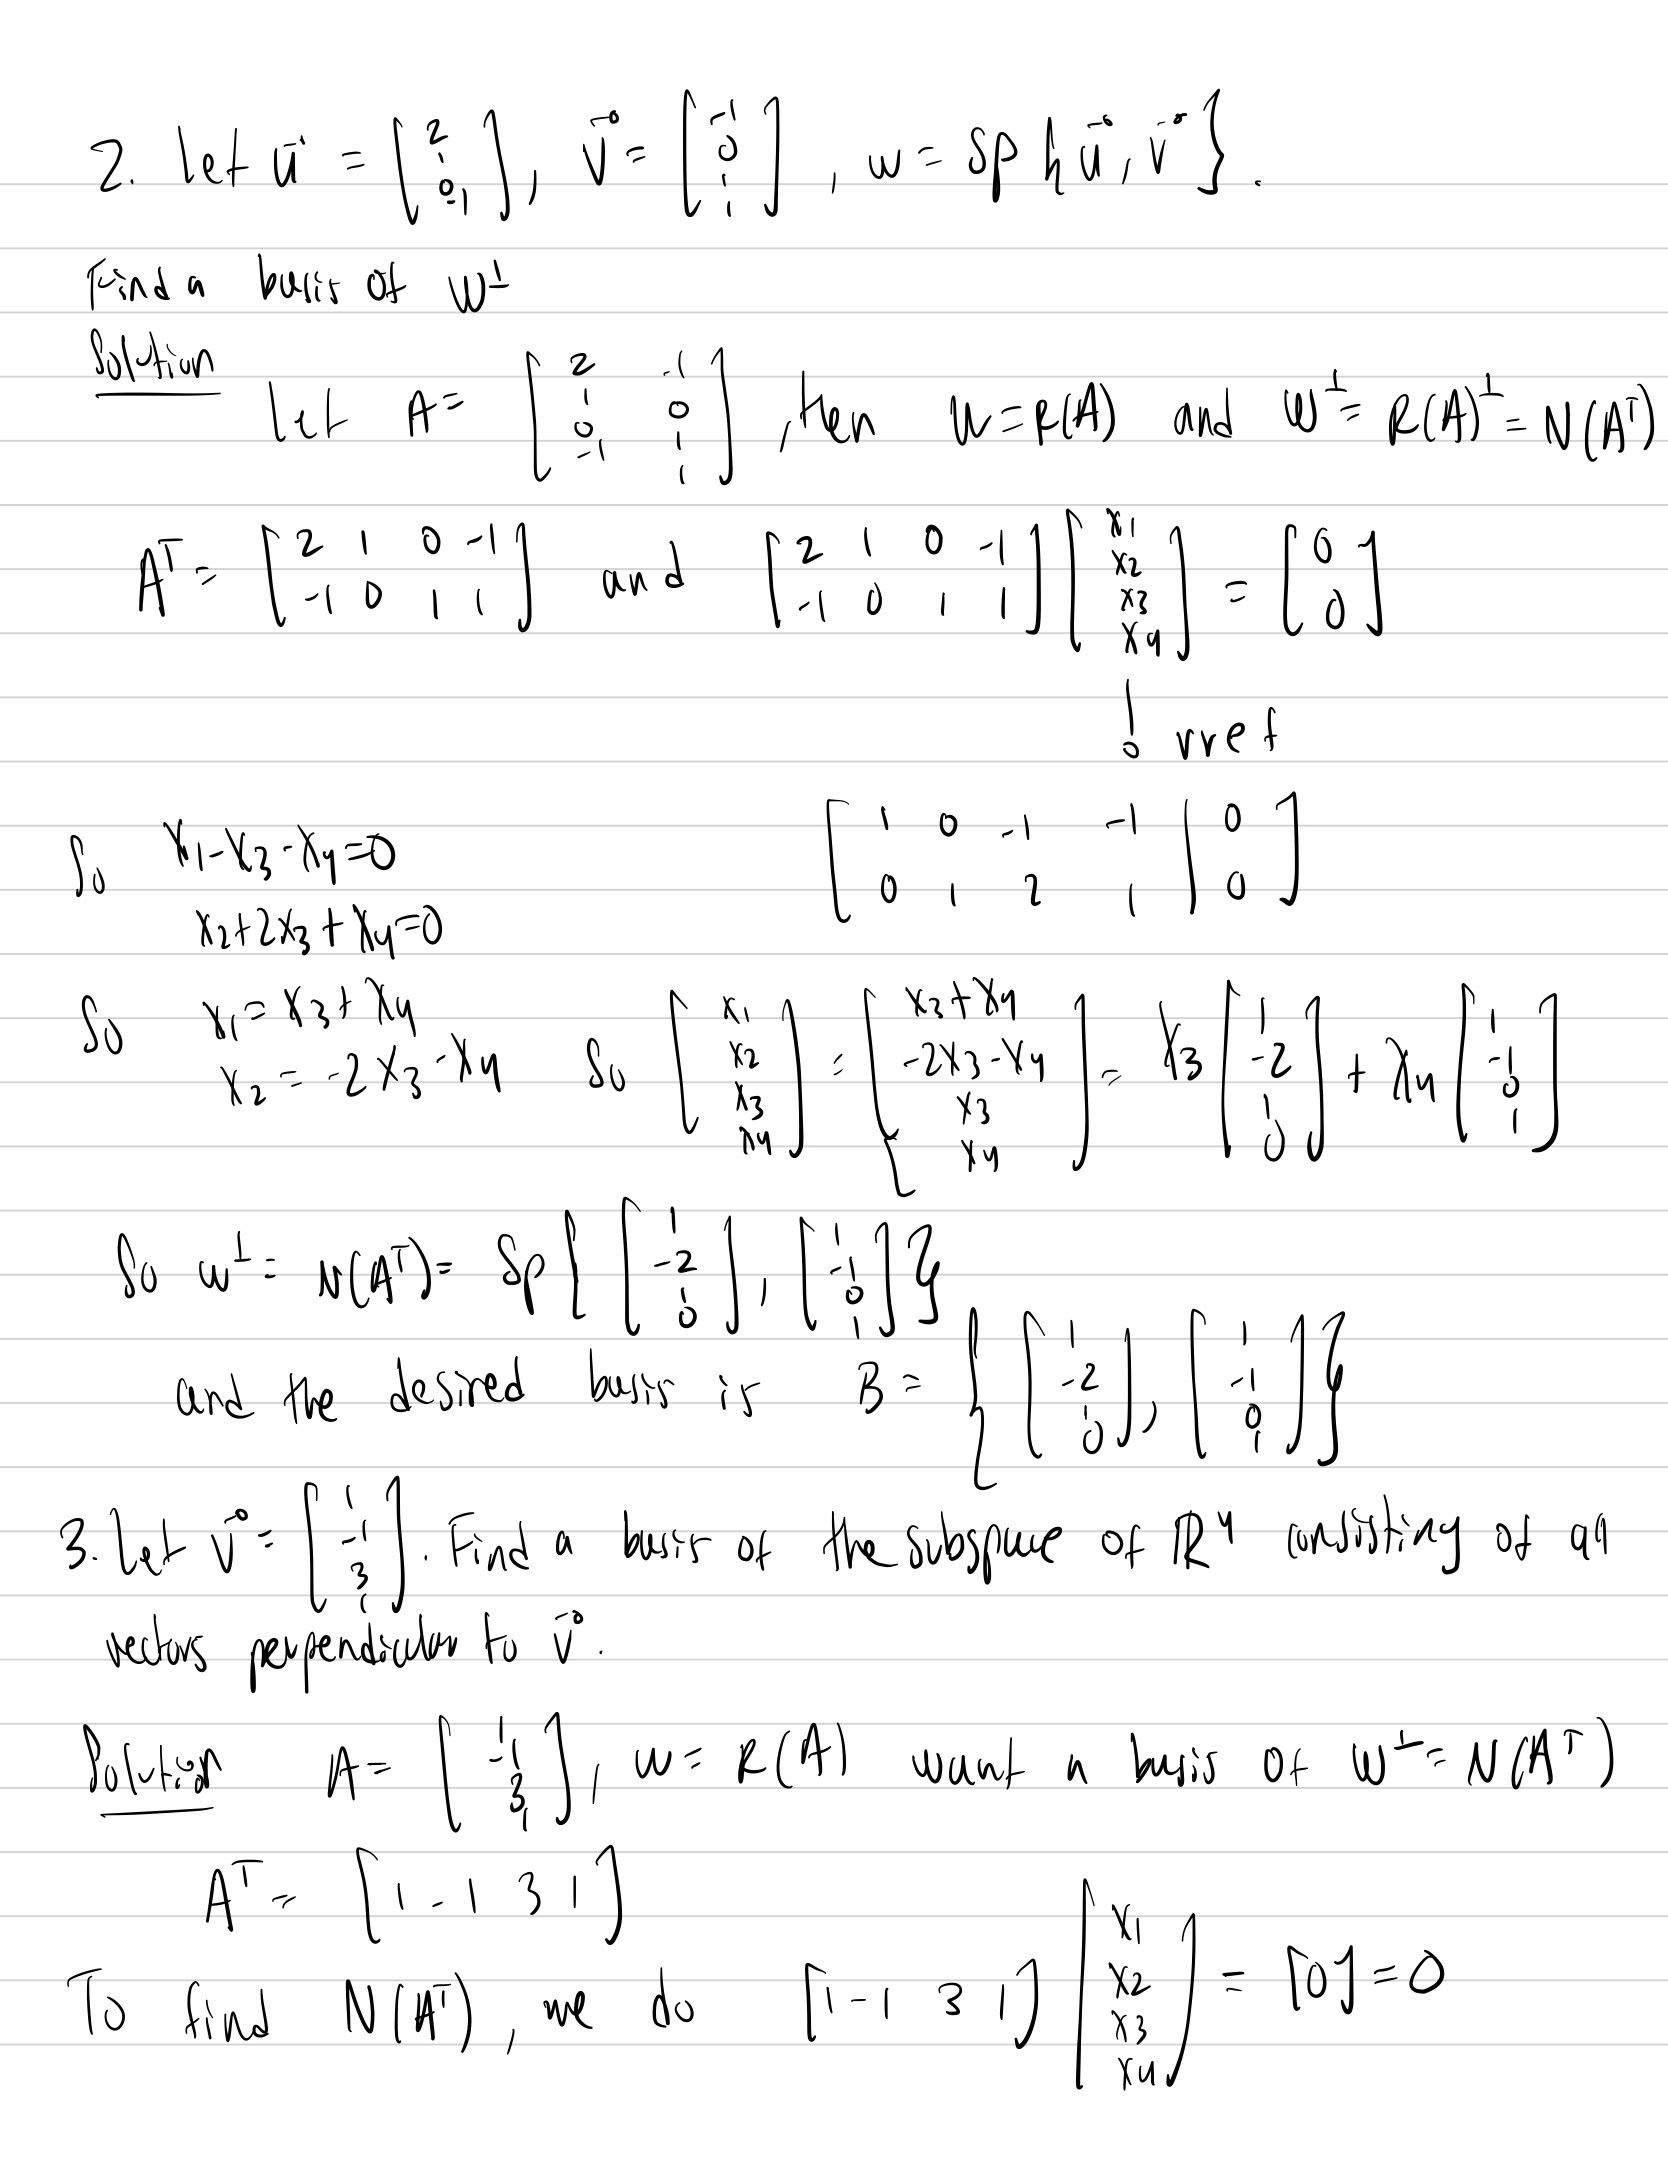 2. Let u⃗ = [2 1 0 -1], v⃗ = [-1 0 1 1], w = Sp{u⃗, v⃗}.
Find a basis of W⊥
Solution
Let A = [2 -1; 1 0; 0 1; -1 1], then W = R(A) and W⊥ = R(A)⊥ = N(Aᵀ)
Aᵀ = [2 1 0 -1; -1 0 1 1] and [2 1 0 -1; -1 0 1 1] [x1 x2 x3 x4] = [0 0]
↓ rref
[1 0 -1 -1 | 0; 0 1 2 1 | 0]
So x1-x3-x4=0
x2+2x3+x4=0
So x1 = x3+x4
x2 = -2x3-x4 So [x1 x2 x3 x4] = [x3+x4 -2x3-x4 x3 x4] = x3 [1 -2 1 0] + x4 [1 -1 0 1]
So w⊥ = N(Aᵀ) = Sp{[1 -2 1 0], [1 -1 0 1]}
and the desired basis is B = {[1 -2 1 0], [1 -1 0 1]}
3. Let v⃗ = [1 -1 3 1]. Find a basis of the subspace of ℝ4 consisting of all
vectors perpendicular to v⃗.
Solution A = [1 -1 3 1], w = R(A) want a basis of W⊥ = N(Aᵀ)
Aᵀ = [1 -1 3 1]
To find N(Aᵀ), we do [1 -1 3 1] [x1 x2 x3 x4] = [0] = 0